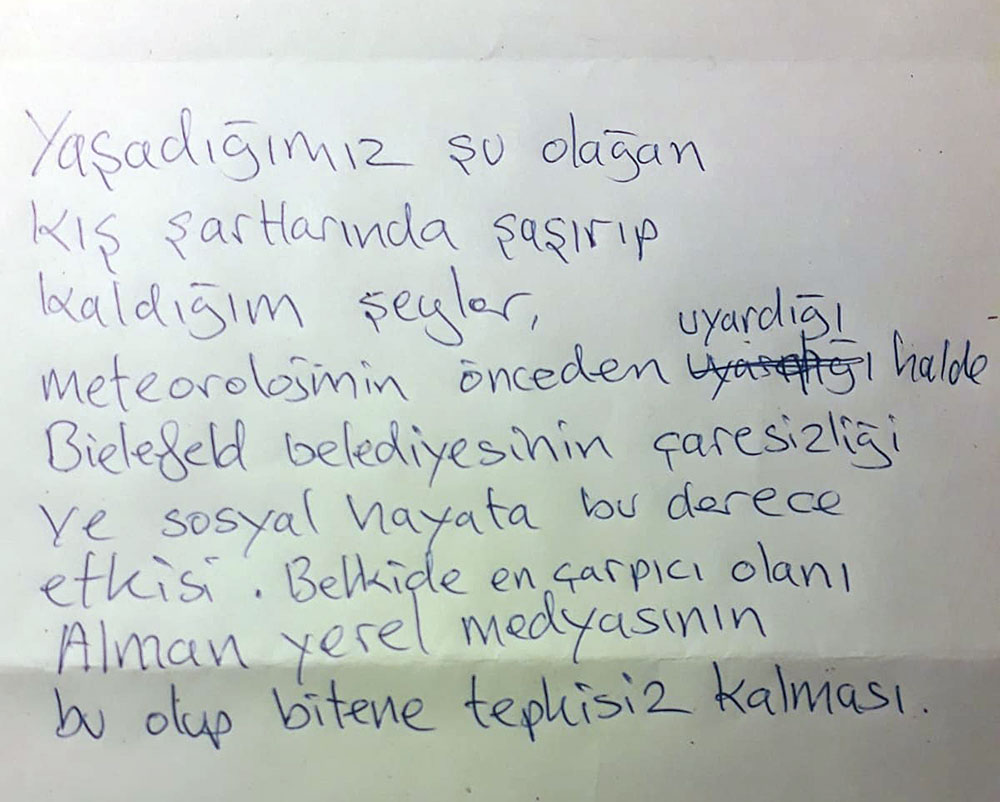 Yaşadığımız şu olağan
kış şartlarında şaşırıp
kaldığım şeyler,
uyardığı
meteorolojinin önceden halde
Bielefeld belediyesinin çaresizliği
ve sosyal hayata bu derece
etkisi. Belkide en çarpıcı olanı
Alman yerel medyasının
bu olup bitene tepkisiz kalması.